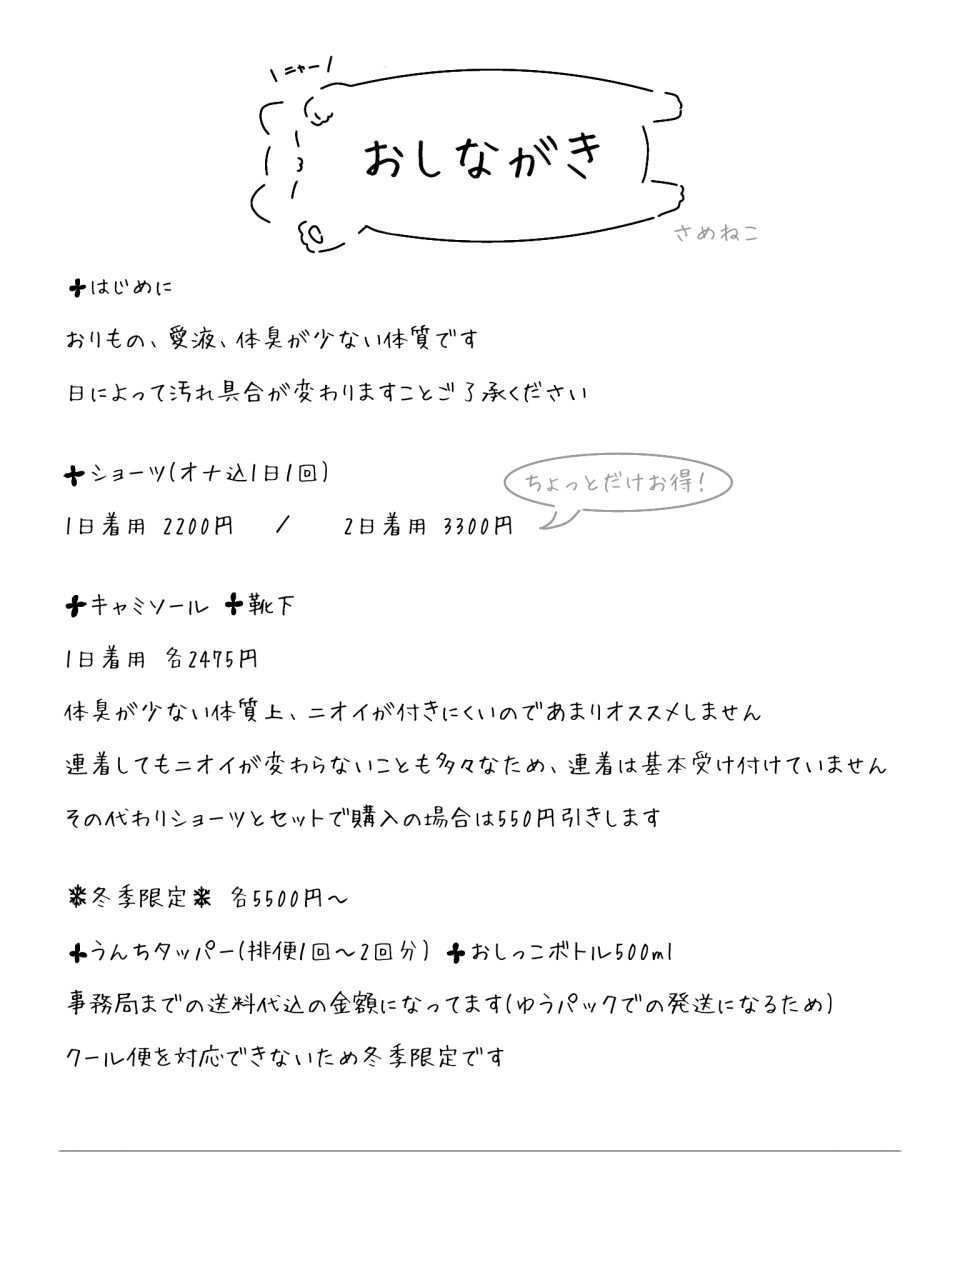 ニャー
おしながき
さめねこ
はじめに
おりもの、愛液、体臭が少ない体質です
日によって汚れ具合が変わりますことご了承ください
ショーツ(オナ込1日1回)
ちょっとだけお得!
1日着用 2200円 / 2日着用 3300円
キャミソール 靴下
1日着用 各2475円
体臭が少ない体質上、ニオイが付きにくいのであまりオススメしません
連着してもニオイが変わらないことも多々なため、連着は基本受け付けていません
その代わりショーツとセットで購入の場合は550円引きします
冬季限定 各5500円〜
うんちタッパー(排便1回〜2回分) おしっこボトル500ml
事務局までの送料代込の金額になってます(ゆうパックでの発送になるため)
クール便を対応できないため冬季限定です